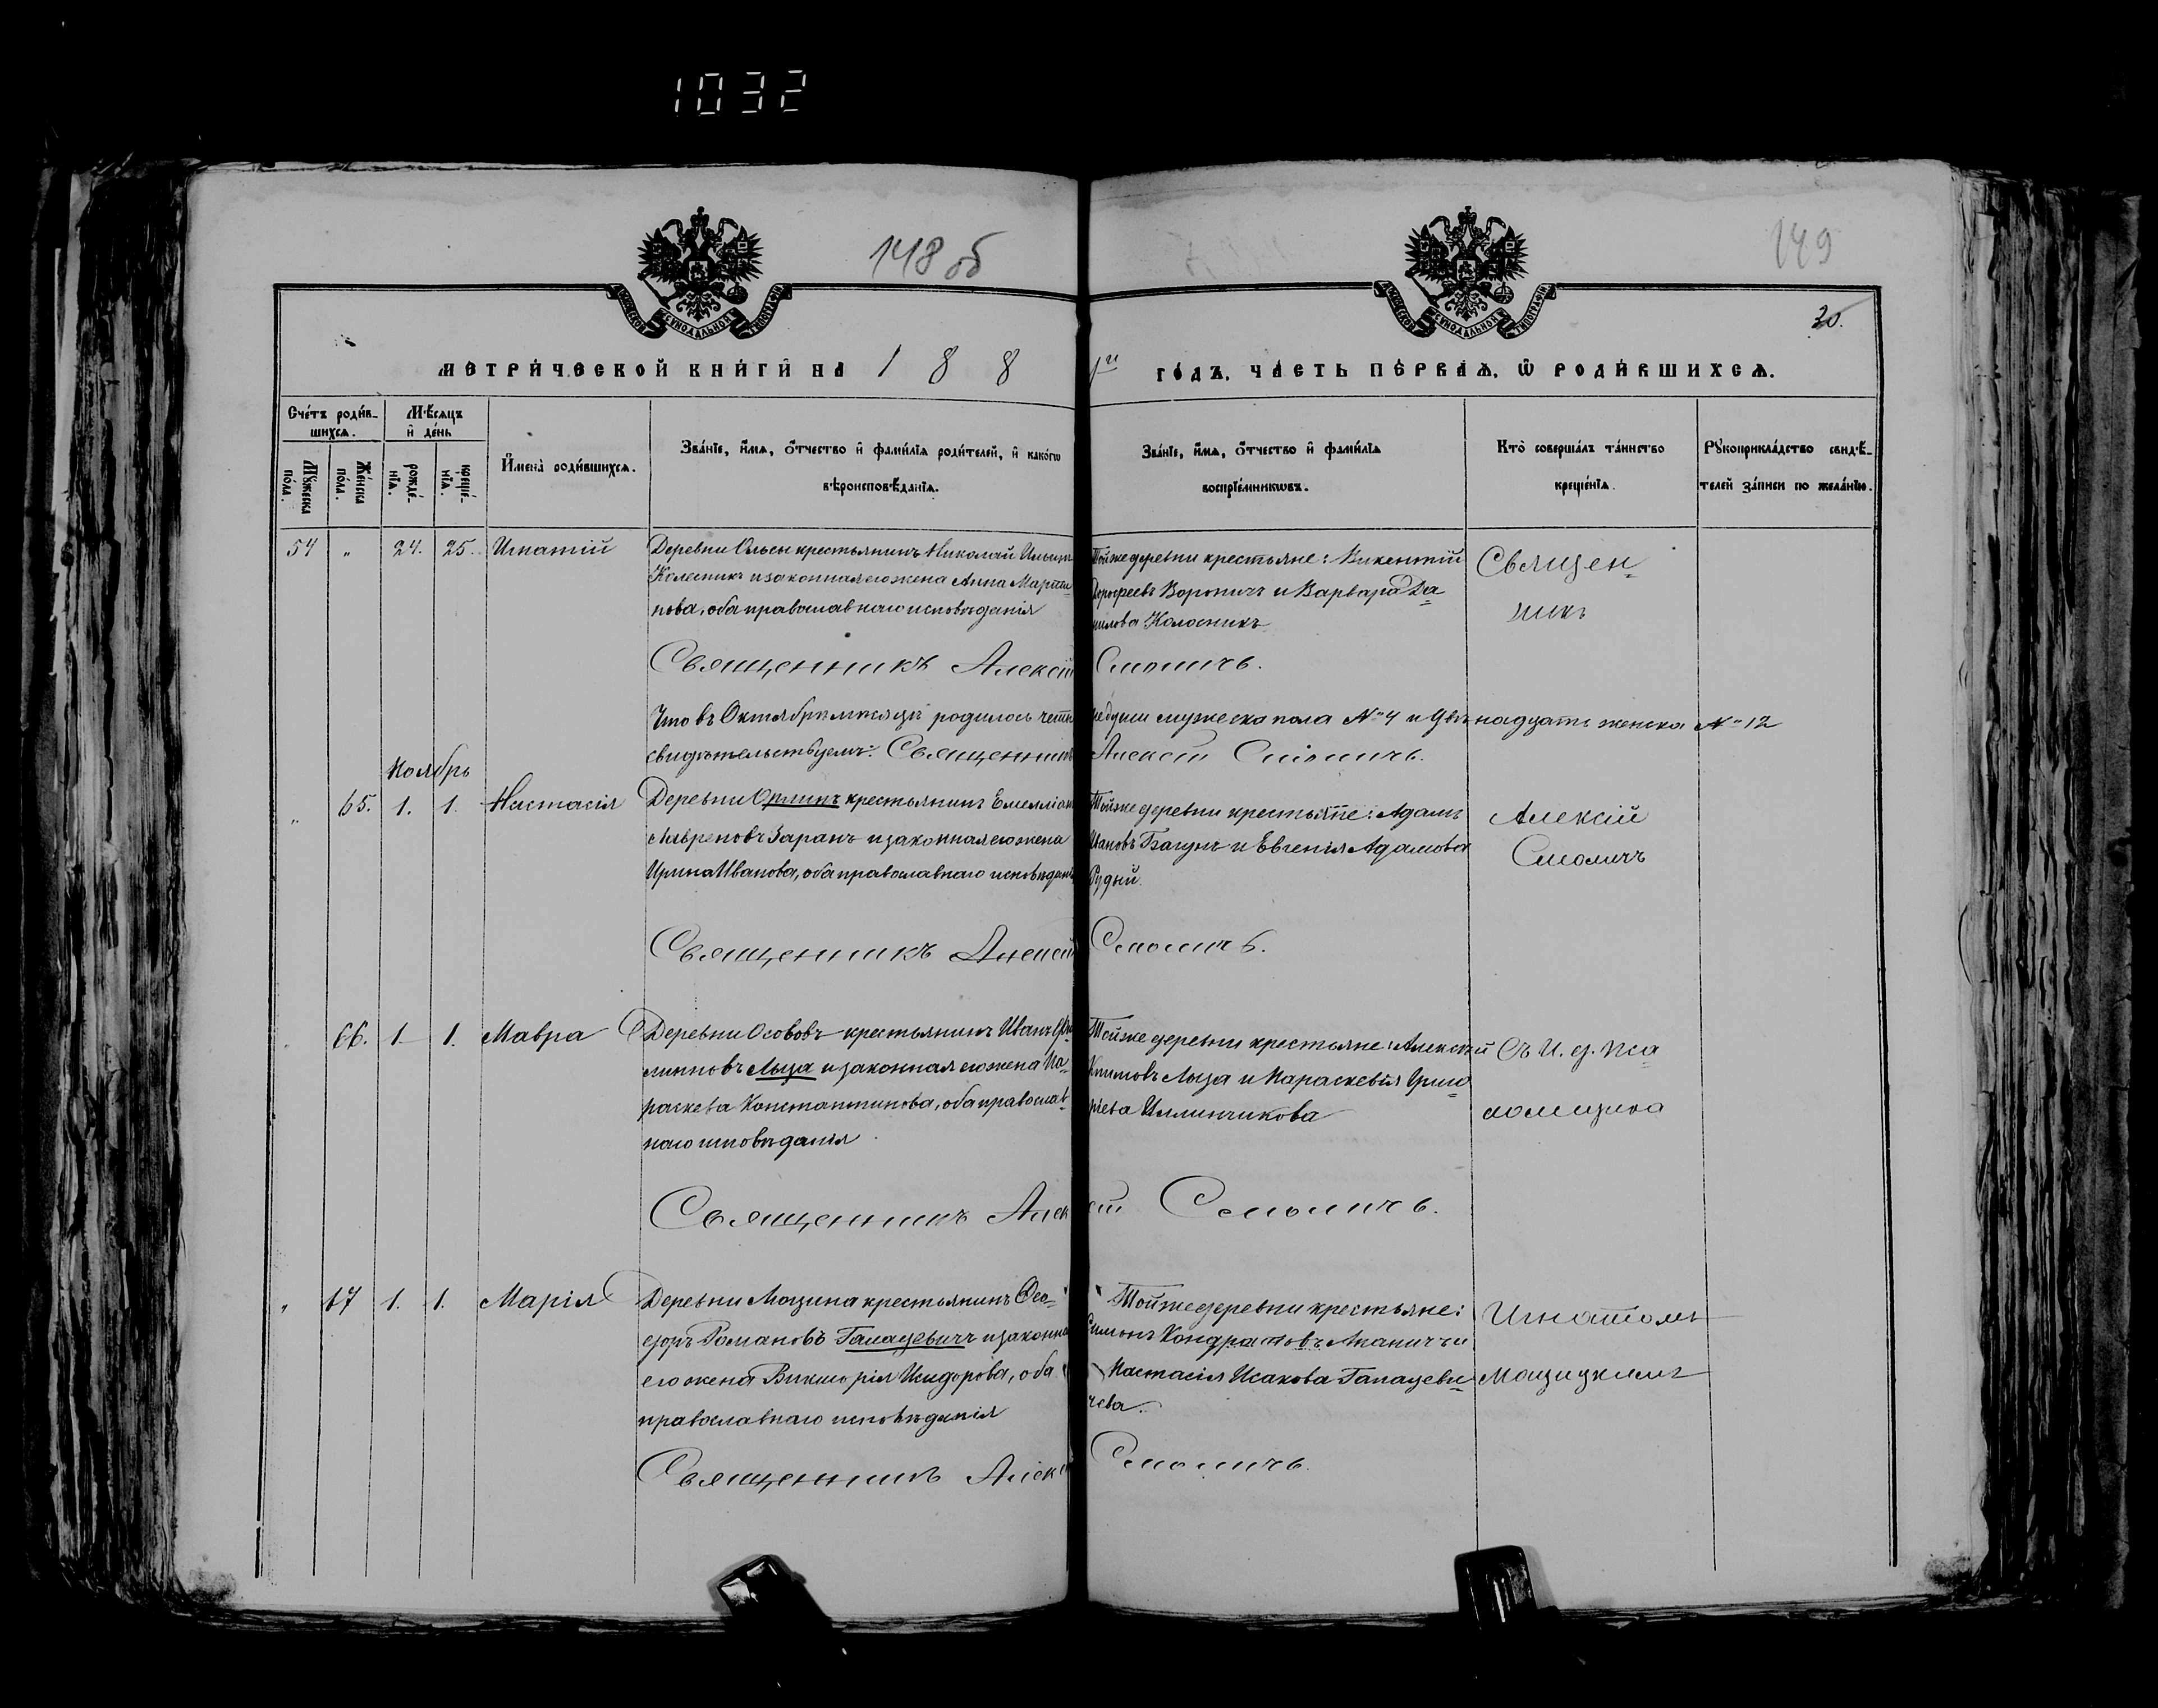 1032
148 об
149
30.
МОСКОВСКОЙ СѴНОДАЛЬНОЙ ТИПОГРАФІИ
МОСКОВСКОЙ СѴНОДАЛЬНОЙ ТИПОГРАФІИ
МЕТРИ́ЧЕСКОЙ КНИ́ГИ НА 1 8 8 1го ГО́ДЪ, ЧА́СТЬ ПЕ́РВАѦ, Ѡ РОДИ́ВШИХСѦ.
Сче́тъ роди́в-
шихсѧ.
Мѣ́сѧцъ
и де́нь
Мꙋ́жеска
по́ла.
Же́нска
по́ла.
рожде́-
нїѧ.
креще́-
нїѧ.
И҆мена̀ роди́вшихсѧ.
Зва́нїе, и҆́мѧ, ѻ҆́тчество и҆ фами́лїѧ роди́телей, и҆ како́гѡ
вѣроисповѣ́данїѧ.
Зва́нїе, и҆́мѧ, ѻ҆́тчество и҆ фами́лїѧ
воспрїе́мникѡвъ.
Кто̀ соверша́лъ та́инство
креще́нїѧ.
Рꙋкоприкла́дство свидѣ́-
телей за́писи по жела́нїю.
54 " 24. 25. Игнатій Деревни Ольсы крестьянинъ Николай Ильинъ
Колесникъ и законная его жена Анна Марти-
нова, оба православнаго исповѣданія
Тойже деревни крестьяне: Викентій
Дорофеевъ Вороничъ и Варвара Да-
нилова Колосникъ
Священ-
никъ
Священникъ Алексій Смоличъ.
Что въ Октябрѣ мѣсяцѣ родилось четыре души мужеска пола №4 и двѣнадцать женска №12
свидѣтельствуемъ: Священникъ Алексій Смоличъ.
Ноябрь
" 65. 1. 1. Настасія Деревни крестьянинъ Емелліанъ
Лавреновъ Заранъ и законная его жена
Ирина Иванова, оба православнаго исповѣданія
Тойже деревни крестьяне: Адамъ
Ивановъ Багунъ и Евгенія Адамова
Рудый.
Алексій
Смоличъ
Священникъ Алексій Смоличъ.
66. 1. 1. Мавра Деревни Осововъ крестьянинъ Иванъ Фи-
липповъ Лыза и законная его жена Па-
раскева Константинова, оба православ-
наго исповѣданія
Тойже деревни крестьяне: Алексѣй
Климовъ Лыза и Параскевія Григо-
ріева Иллинчикова
Съ И. д. Пса-
ломщика
Священникъ Алексій Смоличъ.
" 67 1. 1. Марія Деревни Мощина крестьянинъ Ѳео-
доръ Романовъ Гапацевичъ и законная
его жена Викторія Исидорова, оба
православнаго исповѣданія
Тойже деревни крестьяне:
Симонъ Кондратовъ Аканичъ и
Настасія Исакова Гапацеви-
чева.
Игнатомъ
Мощицкимъ
Священникъ Алексій Смоличъ.